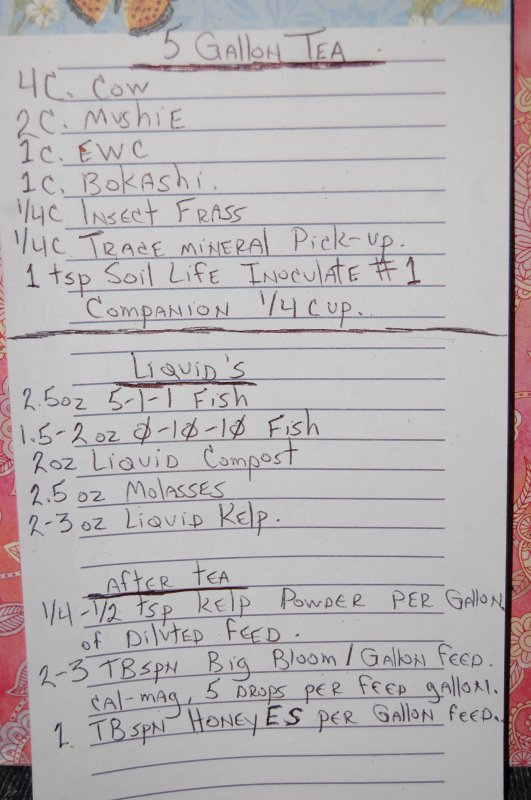 5 Gallon Tea.
4C. Cow
2C. Mushie
1C. EWC
1C. Bokashi.
1/4C Insect Frass
1/4C Trace mineral Pick-up.
1 tsp Soil Life Inoculate #1
Companion 1/4 Cup.
Liquid's
2.5oz 5-1-1 Fish
1.5-2oz 0-10-10 Fish
2oz Liquid Compost
2.5 oz Molasses
2-3 oz Liquid Kelp.
After tea
1/4-1/2 tsp kelp Powder per Gallon
of Diluted Feed.
2-3 TBspn Big Bloom/Gallon feed.
cal-mag, 5 Drops per feed gallon.
1 TBspn Honey ES per Gallon feed.